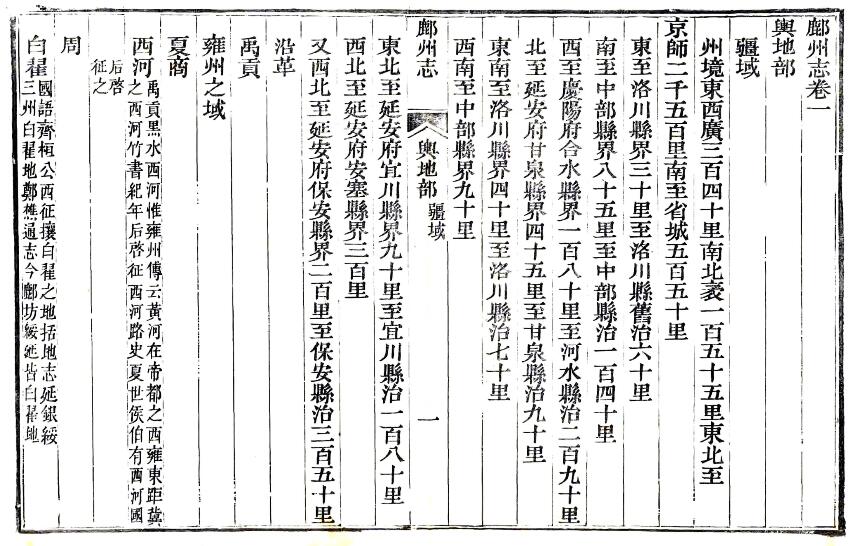 鄜州志卷一
輿地部
疆域
州境東西廣三百四十里南北袤一百五十五里東北至
京師二千五百里南至省城五百五十里
東至洛川縣界三十里至洛川縣舊治六十里
南至中部縣界八十五里至中部縣治一百四十里
西至慶陽府合水縣界一百八十里至河水縣治二百九十里
北至延安府甘泉縣界四十五里至甘泉縣治九十里
東南至洛川縣界四十里至洛川縣治七十里
西南至中部縣界九十里
鄜州志 輿地部 疆域 一
東北至延安府宜川縣界九十里至宜川縣治一百八十里
西北至延安府安塞縣界三百里
又西北至延安府保安縣界二百里至保安縣治三百五十里
沿革
禹貢
雍州之域
夏商
西河禹貢黑水西河惟雍州傳云黃河在帝都之西雍東距冀
之西河竹書紀年后啓征西河路史夏世侯伯有西河國
后啓
征之
周
白翟國語齊桓公西征攘白翟之地括地志延銀綏
三州白翟地鄭樵通志今鄜坊綏延皆白翟地